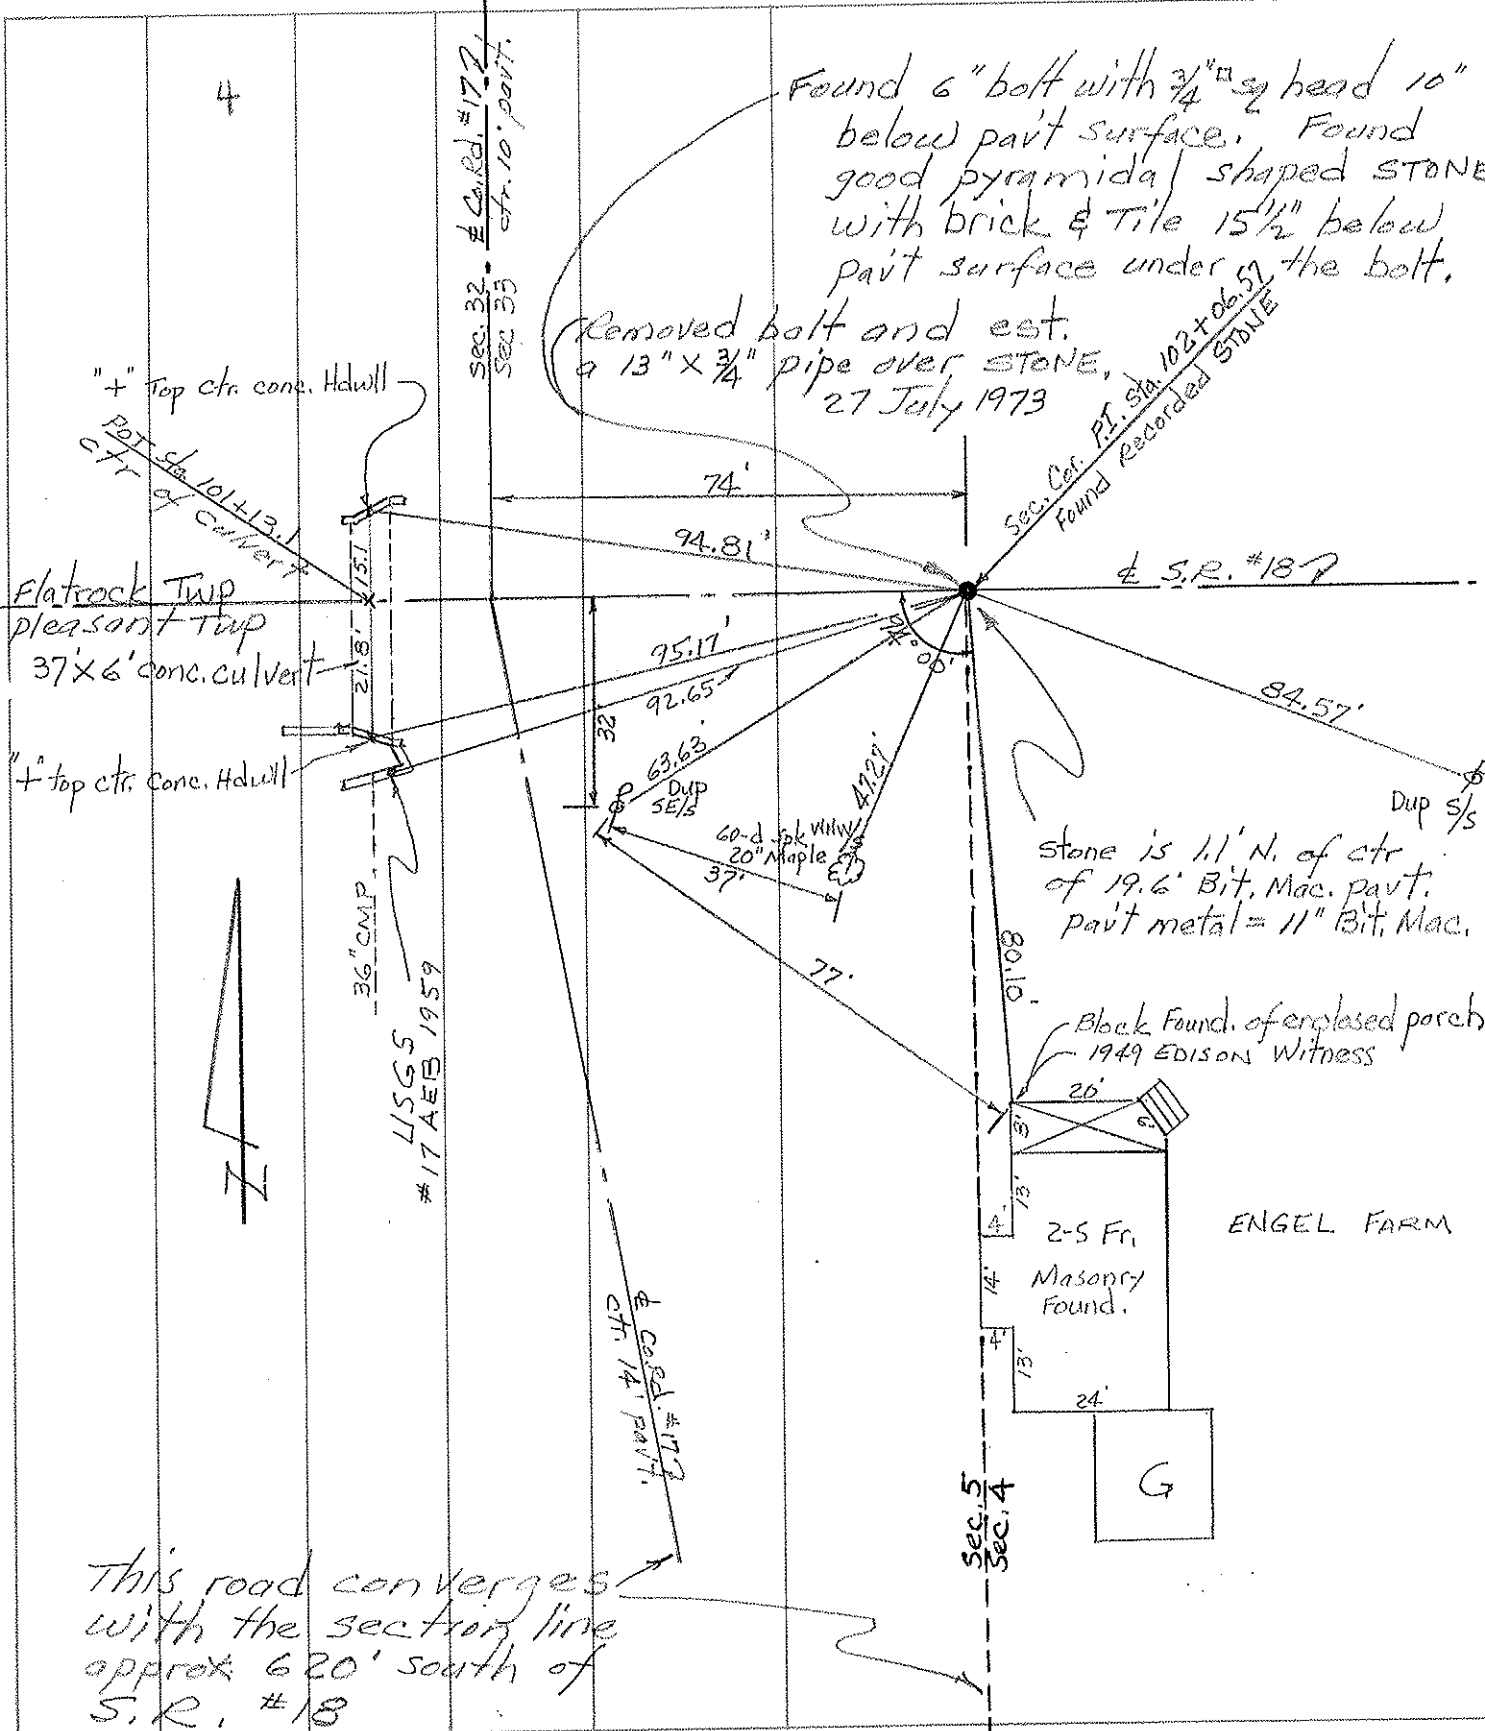 4
Sec. 32 ℄ Co.Rd. #17
Sec 33 ctr. 10' pav't.
Found 6" bolt with 3/4"□ sq head 10"
below pav't surface. Found
good pyramidal shaped STONE
with brick & Tile 15 1/2" below
pav't surface under the bolt.
Removed bolt and est.
a 13" X 3/4" pipe over STONE,
27 July 1973
Sec. Cor. P.I. Sta. 102+06.57
Found Recorded STONE
"+" Top ctr. conc. Hdwll
POT Sta 101+13.1
ctr of culvert
74'
94.81'
℄ S.R. #18
Flatrock Twp
pleasant Twp
37'X6' conc. culvert
15.1
21.8'
"+" top ctr. conc. Hdwll
95.17'
92.65
94°00'
32'
63.63'
Dup
SE/S
47.27'
84.57'
Dup S/S
60-d spk WNW/S
20" Maple
37'
Stone is 1.1' N. of ctr
of 19.6' Bit. Mac. pavt.
pav't metal = 11" Bit. Mac.
36" CMP
USGS
#17 AEB 1959
77'
80.10'
Block Found. of enclosed porch
1949 EDISON Witness
20'
8'
?
13'
4'
2-S Fr.
Masonry
Found.
14'
4'
13'
24'
ENGEL FARM
G
℄ Co.Rd. #17
ctr. 14' pav't.
Sec. 5
Sec. 4
This road converges
with the section line
approx 620' south of
S.R. #18
Z